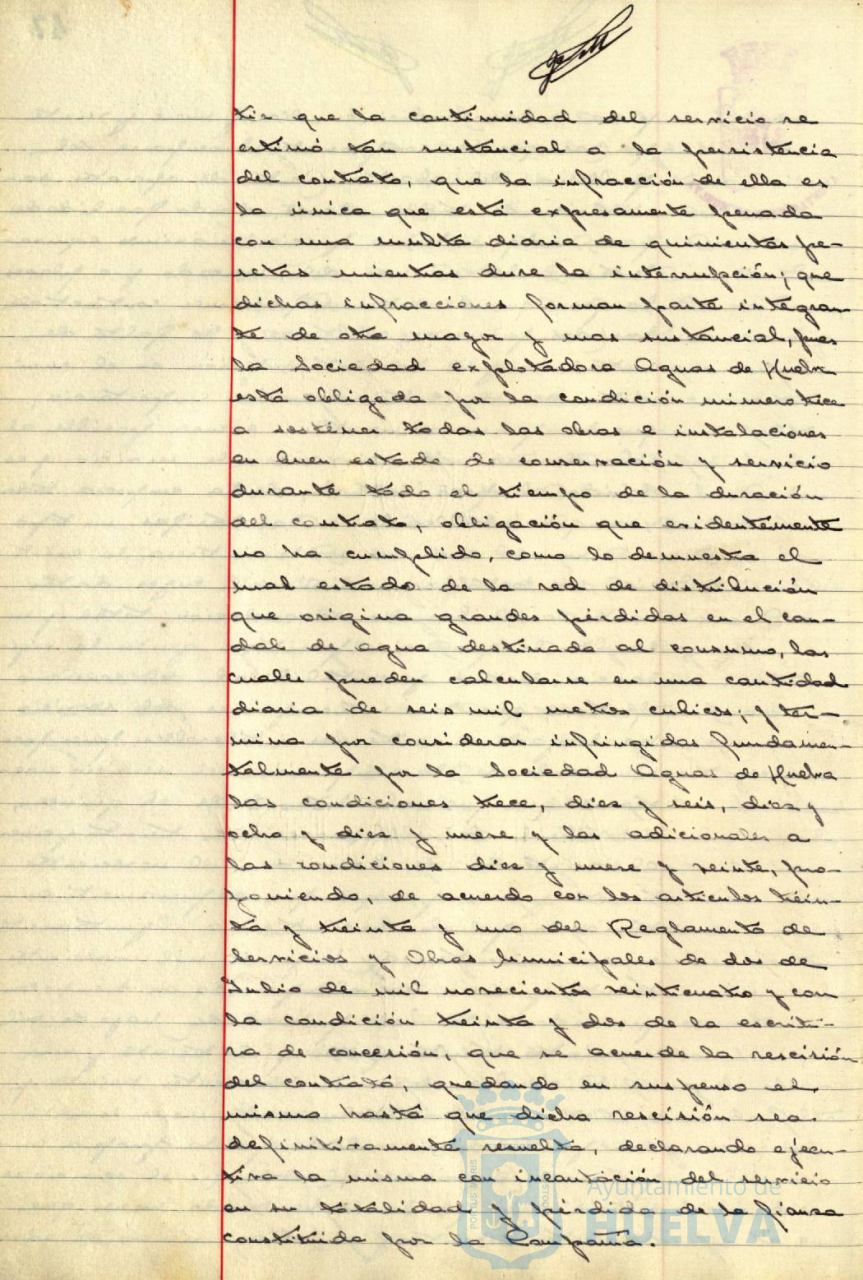 tir que la continuidad del servicio se
estimó tan sustancial a la persistencia
del contrato, que la infracción de ella es
la única que está expresamente penada
con una multa diaria de quinientas pe-
setas mientras dure la interrupción; que
dichas infracciones forman parte integran-
te de otra mayor y mas sustancial, pues
la Sociedad explotadora Aguas de Huelva
está obligada por la condición número trece
a sostener todas las obras e instalaciones
en buen estado de conservación y servicio
durante todo el tiempo de la duración
del contrato, obligación que evidentemente
no ha cumplido, como lo demuestra el
mal estado de la red de distribución
que origina grandes pérdidas en el cau-
dal de agua destinada al consumo, las
cuales pueden calcularse en una cantidad
diaria de seis mil metros cubicos; y ter-
mina por considerar infringidas fundamen-
talmente por la Sociedad Aguas de Huelva
las condiciones trece, diez y seis, diez y
ocho y diez y nueve y las adicionales a
las condiciones diez y nueve y veinte, pro-
poniendo, de acuerdo con los artículos trein-
ta y treinta y uno del Reglamento de
Servicios y Obras Municipales de dos de
Julio de mil novecientos veinticuatro y con
la condición treinta y dos de la escritu-
ra de concesión, que se acuerde la rescisión
del contrato, quedando en suspenso el
mismo hasta que dicha rescisión sea
definitivamente resuelta, declarando ejecu-
tiva la misma con incautación del servicio
en su totalidad y pérdida de la fianza
constituida por la Compañía.
Ayuntamiento de
HUELVA